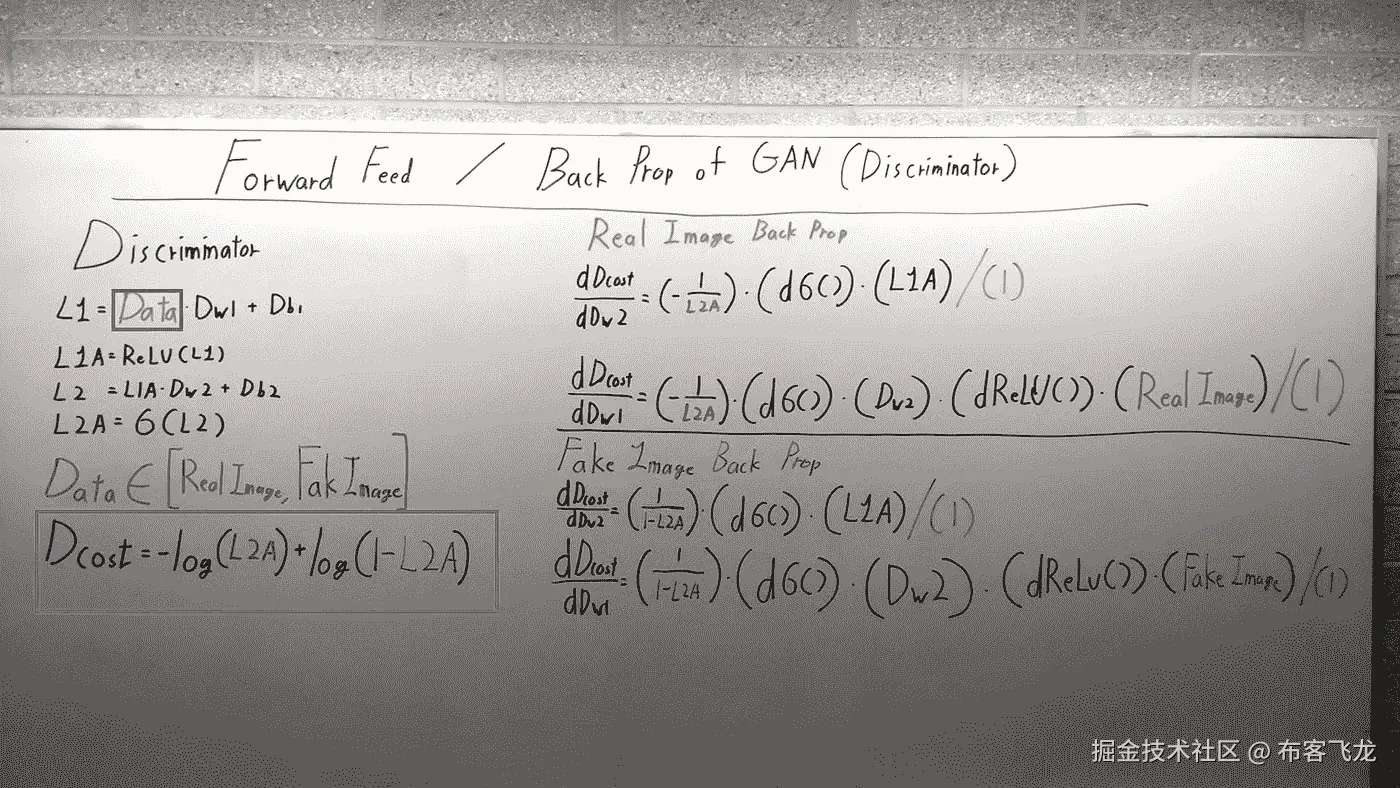 Forward Feed / Back Prop of GAN (Discriminator)
Discriminator
L1 = Data · Dw1 + Db1
L1A = ReLU(L1)
L2 = L1A · Dw2 + Db2
L2A = 6(L2)
Data ∈ [Real Image, Fak Image]
Dcost = -log(L2A) + log(1-L2A)
Real Image Back Prop
dDcost/dDw2 = (-1/L2A) · (d6()) · (L1A) /(1)
dDcost/dDw1 = (-1/L2A) · (d6()) · (Dw2) · (dReLU()) · (Real Image) /(1)
Fake Image Back Prop
dDcost/dDw2 = (1/1-L2A) · (d6()) · (L1A) /(1)
dDcost/dDw1 = (1/1-L2A) · (d6()) · (Dw2) · (dReLu()) · (Fake Image) /(1)
掘金技术社区 @ 布客飞龙